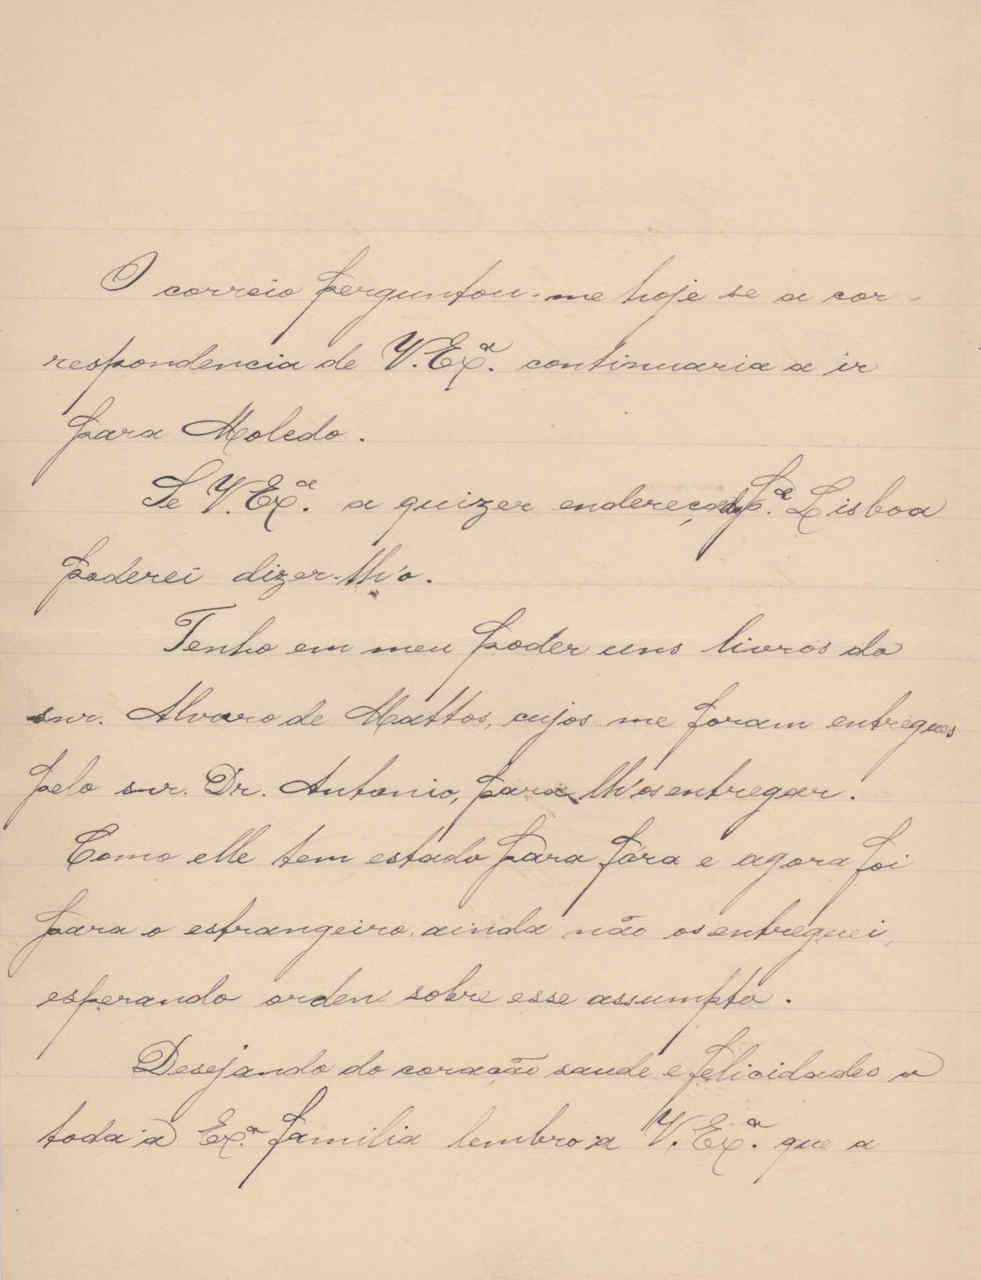 O correio perguntou-me hoje se a cor-
respondencia de V. Exª. continuaria a ir
para Moledo.
Se V. Exª. a quizer endereçada pª. Lisboa
poderei dizer-lh'o.
Tenho em meu poder uns livros do
snr. Alvaro de Mattos, cujos me foram entregues
pelo snr. Dr. Antonio, para lh'os entregar.
Como elle tem estado para fóra e agora foi
para o estrangeiro, ainda não os entreguei,
esperando ordens sobre esse assumpto.
Desejando do coração saude e felicidades a
toda a Exª. familia lembro a V. Exª. que a